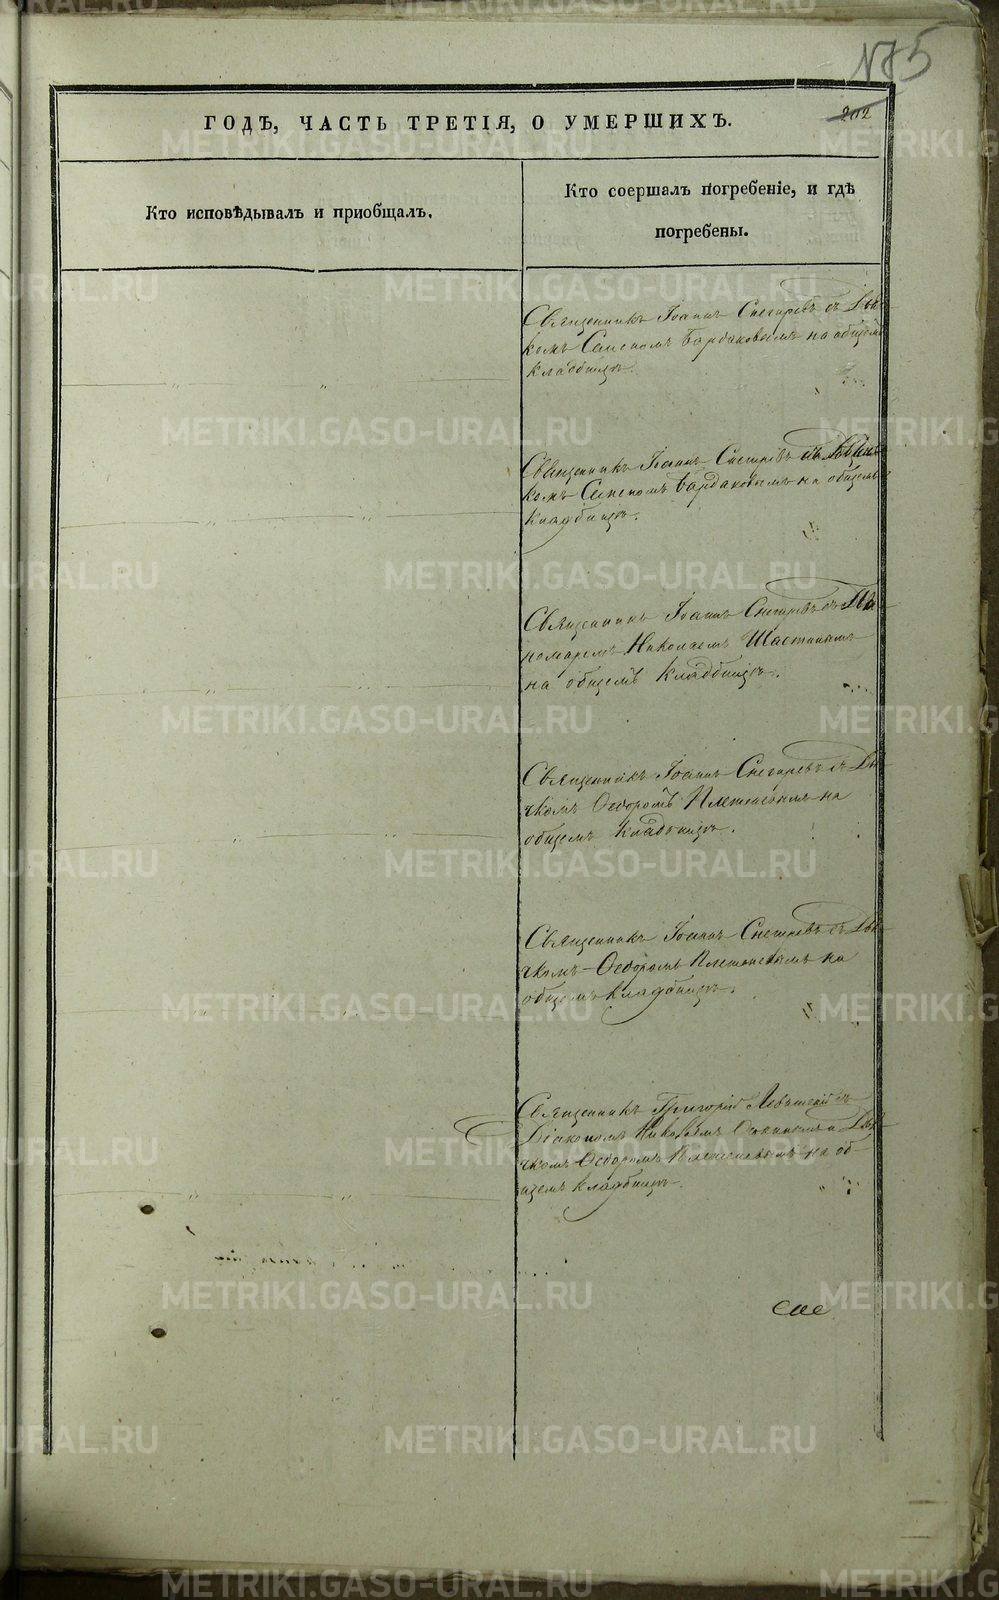 175
202
ГОДѢ, ЧАСТЬ ТРЕТІЯ, О УМЕРШИХЪ.
Кто исповѣдывалъ и пріобщалъ.
Кто соершалъ погребеніе, и гдѣ
погребены.
Священникъ Іоаннъ Снегиревъ съ Дьяч-
комъ Бардаковымъ на общемъ
кладбищѣ.
Священникъ Іоаннъ Снегиревъ съ Дьяч-
комъ Бардаковымъ на общемъ
кладбищѣ.
Священникъ Іоаннъ Снегиревъ съ По-
номаремъ Николаемъ
на общемъ кладбищѣ.
Священникъ Іоаннъ Снегиревъ съ Дья-
чкомъ Ѳедоромъ на
общемъ кладбищѣ.
Священникъ Іоаннъ Снегиревъ съ Дья-
чкомъ Ѳедоромъ на
общемъ кладбищѣ.
Священникъ Григорій съ
Діакономъ Николаемъ и Дья-
чкомъ Ѳедоромъ на об-
щемъ кладбищѣ.
METRIKI.GASO-URAL.RU